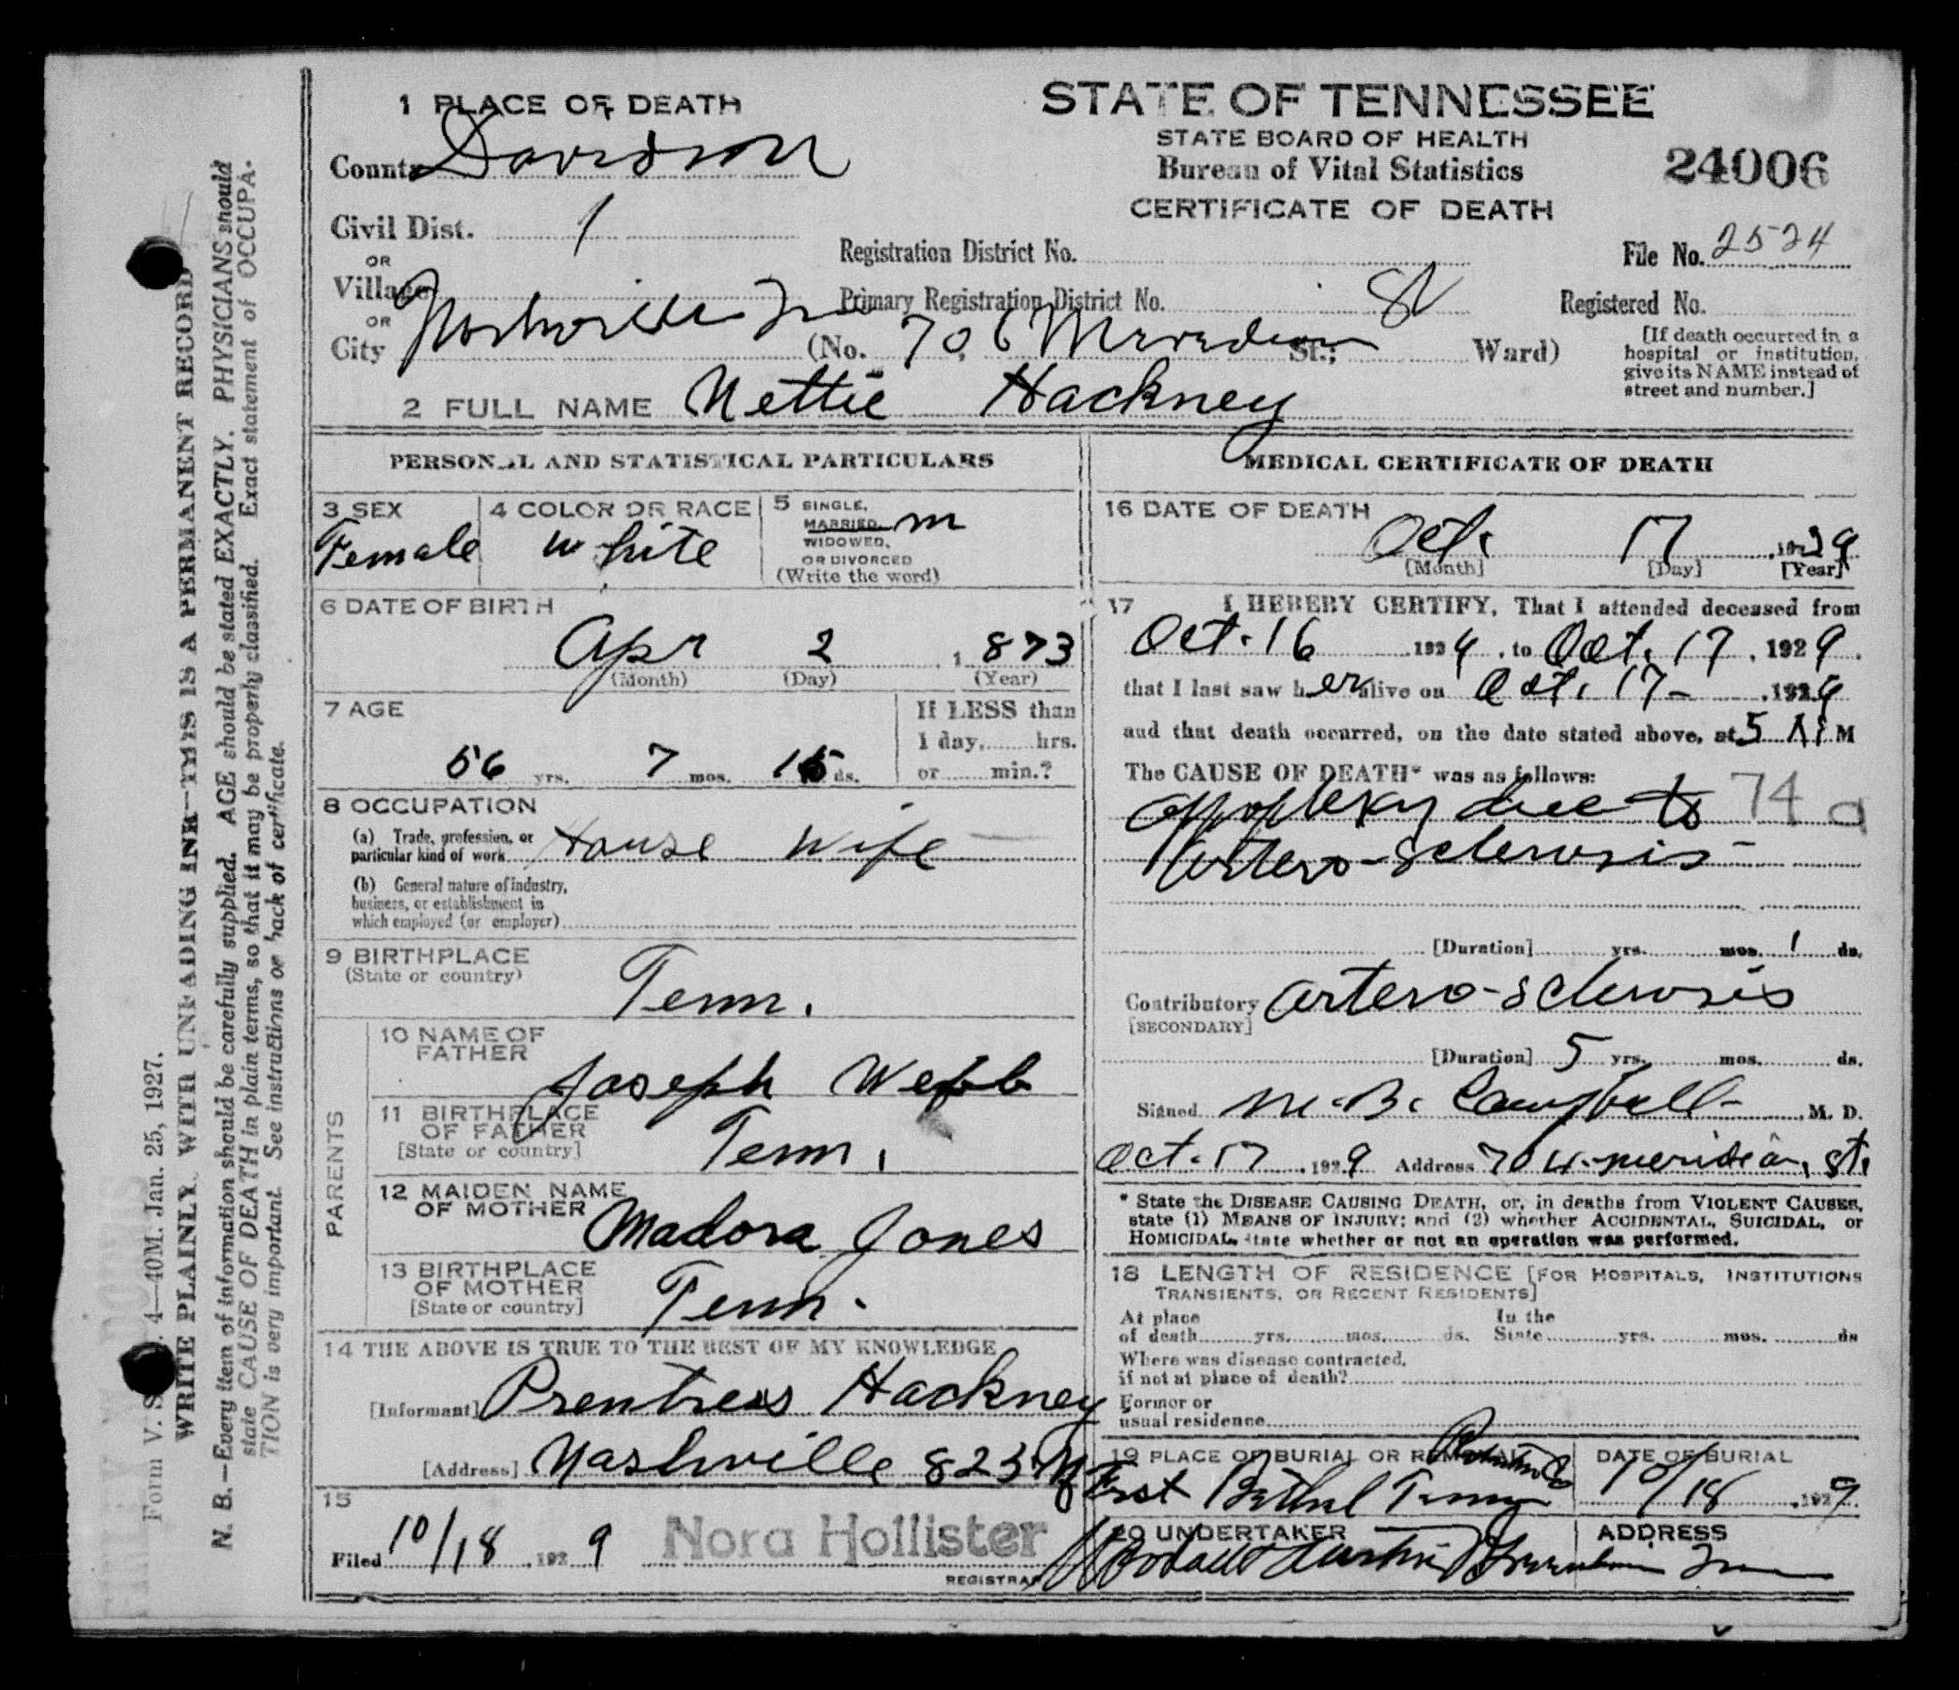 1 PLACE OF DEATH
County Davidson
Civil Dist. 1
OR
Village
OR
City Nashville (No. 706 Meredian St.; Ward)
STATE OF TENNESSEE
STATE BOARD OF HEALTH
Bureau of Vital Statistics
CERTIFICATE OF DEATH
24006
Registration District No.
File No. 2524
Primary Registration District No.
Registered No.
[If death occurred in a
hospital or institution,
give its NAME instead of
street and number.]
2 FULL NAME Nettie Hackney
PERSONAL AND STATISTICAL PARTICULARS
3 SEX
Female
4 COLOR OR RACE
White
5 SINGLE,
MARRIED, m
WIDOWED,
OR DIVORCED
(Write the word)
6 DATE OF BIRTH
Apr 2, 1873
(Month) (Day) (Year)
7 AGE
56 yrs. 7 mos. 15 ds.
If LESS than
1 day, hrs.
or min.?
8 OCCUPATION
(a) Trade, profession, or
particular kind of work House Wife
(b) General nature of industry,
business, or establishment in
which employed (or employer)
9 BIRTHPLACE
(State or country)
Tenn.
PARENTS
10 NAME OF
FATHER
Joseph Webb
11 BIRTHPLACE
OF FATHER
[State or country]
Tenn.
12 MAIDEN NAME
OF MOTHER
Madora Jones
13 BIRTHPLACE
OF MOTHER
[State or country]
Tenn.
14 THE ABOVE IS TRUE TO THE BEST OF MY KNOWLEDGE
[Informant] Prentress Hackney
[Address] Nashville 823
15
Filed 10/18, 1929 Nora Hollister
REGISTRAR
MEDICAL CERTIFICATE OF DEATH
16 DATE OF DEATH
Oct. 17, 1929
[Month] [Day] [Year]
17 I HEREBY CERTIFY, That I attended deceased from
Oct. 16 1929, to Oct. 17, 1929.
that I last saw her alive on Oct. 17- , 1929
and that death occurred, on the date stated above, at 5 A.M
The CAUSE OF DEATH* was as follows:
Appoplexy due to 74 a
artero-sclerosis
[Duration] yrs. mos. 1 ds.
Contributory artero-sclerosis
[SECONDARY]
[Duration] 5 yrs. mos. ds.
Signed M. B. Campbell, M. D.
Oct. 17, 1929 Address meridian, st.
* State the DISEASE CAUSING DEATH, or, in deaths from VIOLENT CAUSES,
state (1) MEANS OF INJURY; and (2) whether ACCIDENTAL, SUICIDAL, or
HOMICIDAL, state whether or not an operation was performed.
18 LENGTH OF RESIDENCE [FOR HOSPITALS, INSTITUTIONS
TRANSIENTS, OR RECENT RESIDENTS]
At place In the
of death yrs. mos. ds. State yrs. mos. ds
Where was disease contracted,
if not at place of death?
Former or
usual residence
19 PLACE OF BURIAL OR REMOVAL
Bethel Tenn
DATE OF BURIAL
10/18, 1929
20 UNDERTAKER
ADDRESS
Form V. S. 4—40M. Jan. 25, 1927.
WRITE PLAINLY WITH UNFADING INK—THIS IS A PERMANENT RECORD
N. B.—Every item of information should be carefully supplied. AGE should be stated EXACTLY. PHYSICIANS should
state CAUSE OF DEATH in plain terms, so that it may be properly classified. Exact statement of OCCUPA-
TION is very important. See instructions on back of certificate.